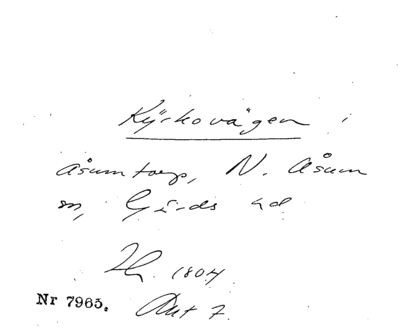 Kyrkovägen i
Åsumtorp, N. Åsum
sn, Gärds hd
1804
Nr 7965. Akt 7.